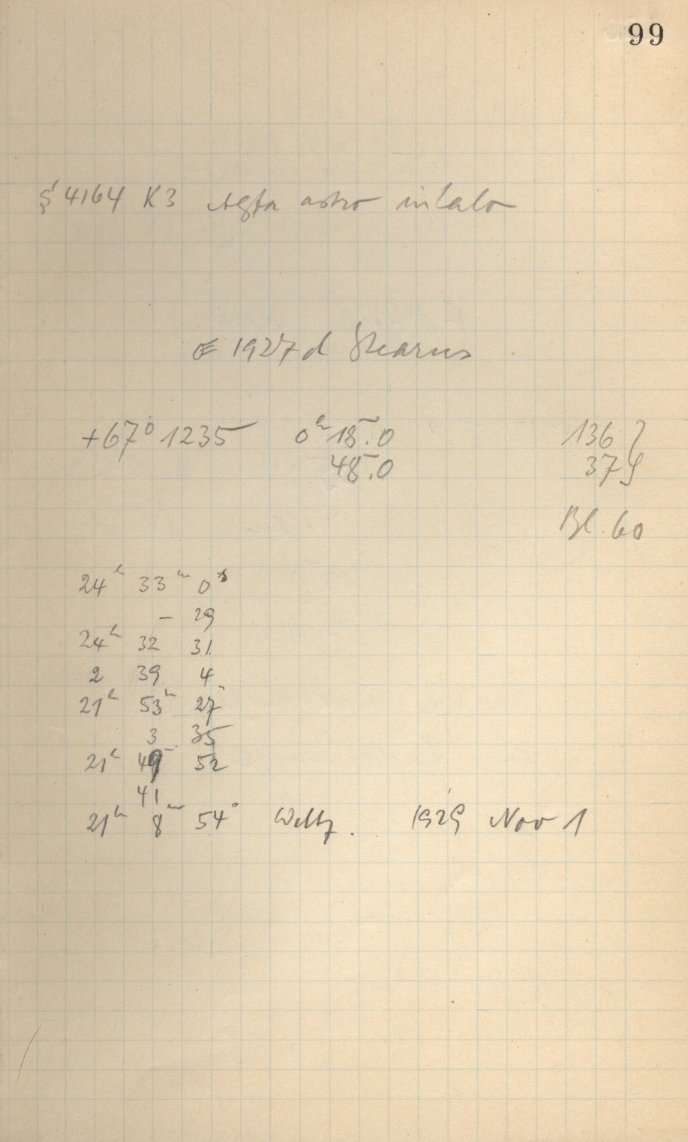 99
4164 K3 Agfa astro
1927d Stearns
+67° 1235 0ʰ 18ᵐ.0 136 }
48.0 37 }
Bl. 60
24ʰ 33ᵐ 0ˢ
– 29
24ʰ 32 31
2 39 4
21ʰ 53ᵐ 27
3 35
21ʰ 49 52
41
21ʰ 8ᵐ 54ˢ 1929 Nov 1